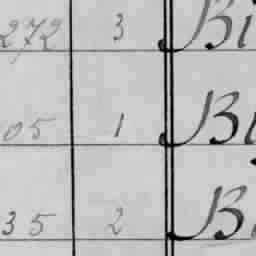 272 3 Bi
05 1 Bi
35 2 B